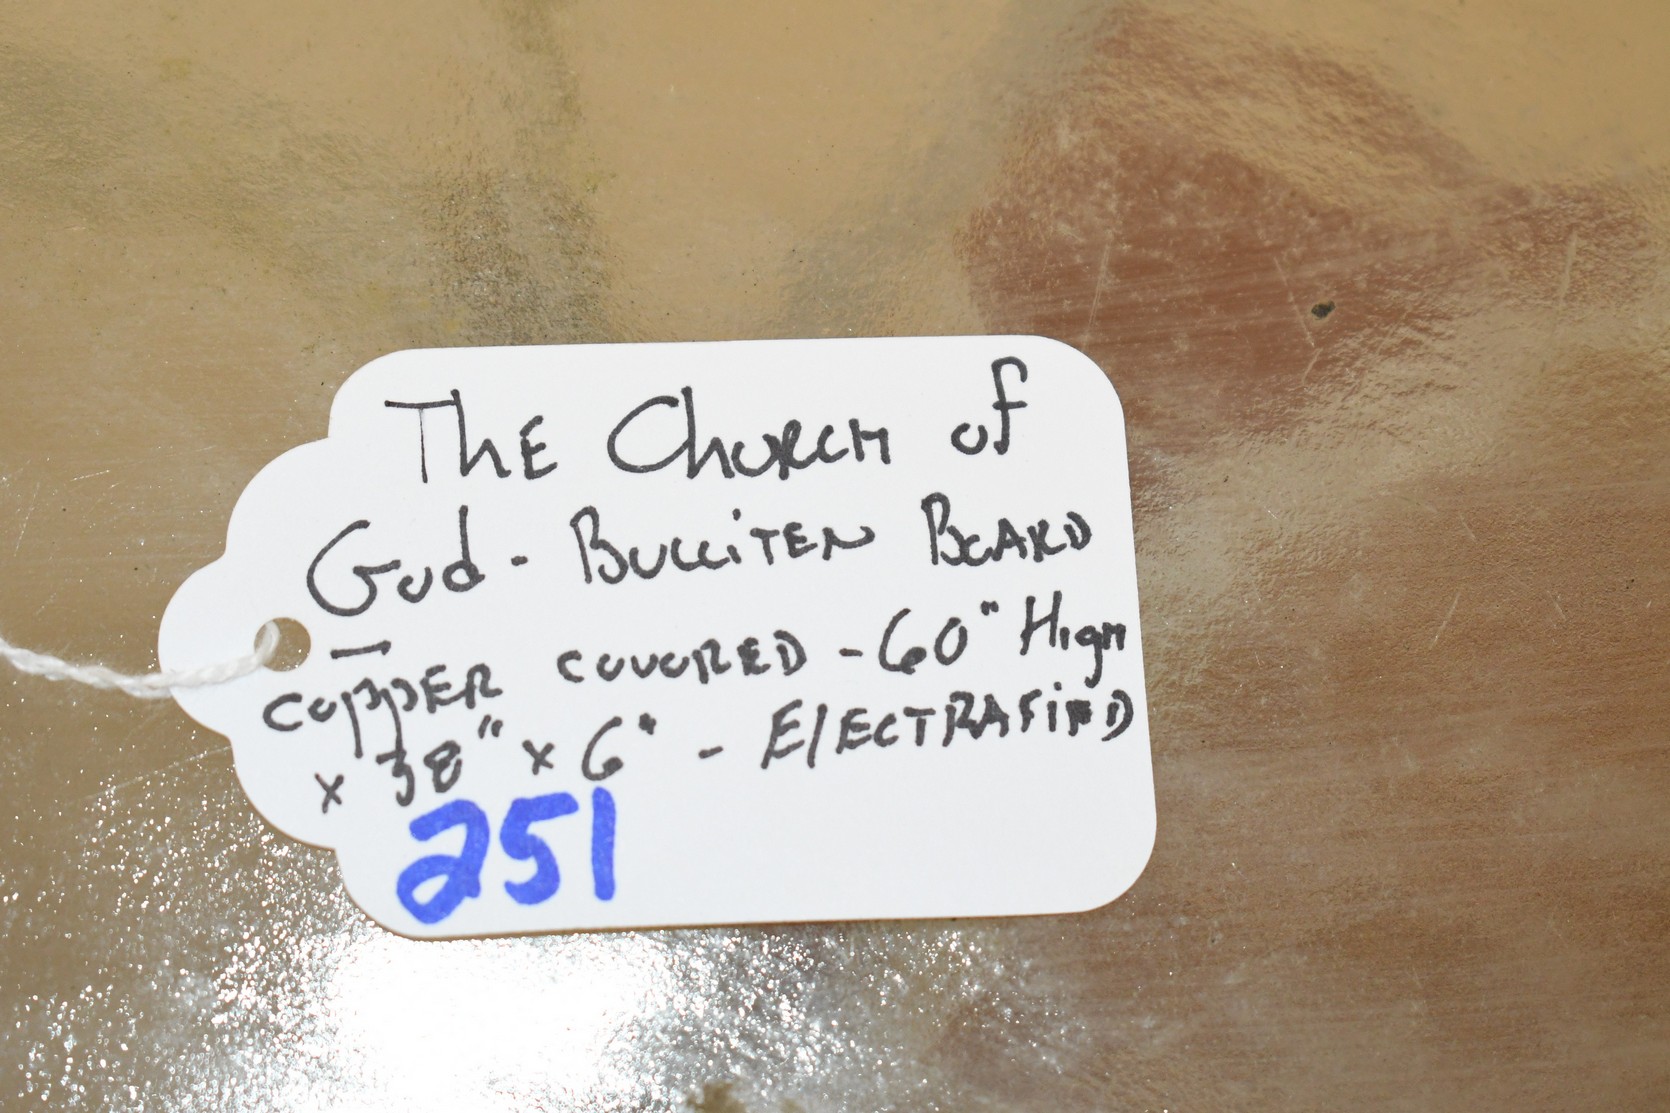 The Church of
God - Bulliten Board
-
copper covored - 60" High
x 38" x 6" - Electrafied
251